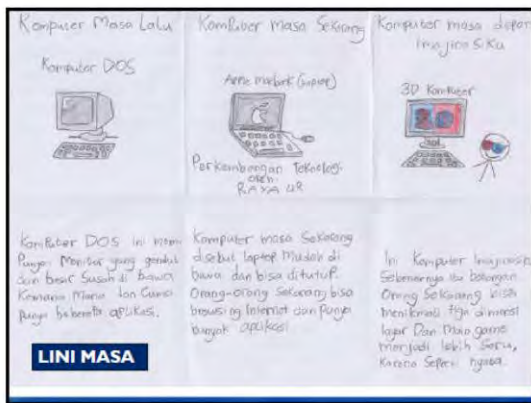 Komputer Masa Lalu
Komputer DOS
Komputer DOS ini mem
Punyai Monitor yang gendut
dan besar Susah di bawa
Kemana Mana dan Cuma
punya beberapa aplikasi.
Komputer masa Sekarang
Apple macbook (laptop)
Perkembangan Teknologi
oleh:
RAYA 4R
Komputer masa Sekarang
disebut laptop Mudah di
bawa dan bisa ditutup.
Orang-orang Sekarang bisa
browsing Internet dan Punya
banyak aplikasi
Komputer masa depan
Imajinasiku
3D Komputer
Ini Komputer Imajinasiku
Sebenarnya itu
Orang Sekarang bisa
menikmati tiga dimensi
layar Dan Main game
menjadi lebih Seru,
Karena Seperti nyata.
LINI MASA